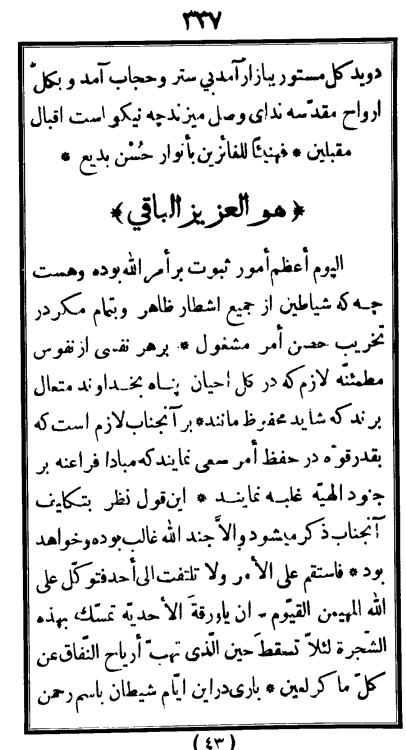 ٣٣٧
دوید کل مستور ببازار آمد بی ستر و حجاب آمد و بکلّ
ارواح مقدّسه ندای وصل میزند چه نیکو است اقبال
مقبلین * فهنیئاً للفائزین بأنوار حُسْن بدیع *
﴿ هو العزیز الباقي ﴾
الیوم أعظم أمور ثبوت بر أمر الله بوده وهست
چه که شیاطین از جمیع اشطار ظاهر وبتمام مکر در
تخریب حصن أمر مشغول * بر هر نفسی از نفوس
مطمئنّه لازم که در کل احیان پناه بخداوند متعال
برند که شاید محفوظ مانند * بر آنجناب لازم است که
بقدر قوّه در حفظ أمر سعی نمایند که مبادا فراعنه بر
جنود الهیّه غلبه نمایند * این قول نظر بتکلیف
آنجناب ذکر میشود والّا جند الله غالب بوده وخواهد
بود * فاستقم علی الأمر ولا تلتفت الی أحد فتوکّل علی
الله المهیمن القیّوم - ان یاورقة الأحدیّه تمسّك بهذه
الشّجرة لئلاّ تسقط حین الّذی تهبّ أریاح النّفاق عن
کلّ ماکر لعین * باری در این ایّام شیطان باسم رحمن
( ٤٣ )